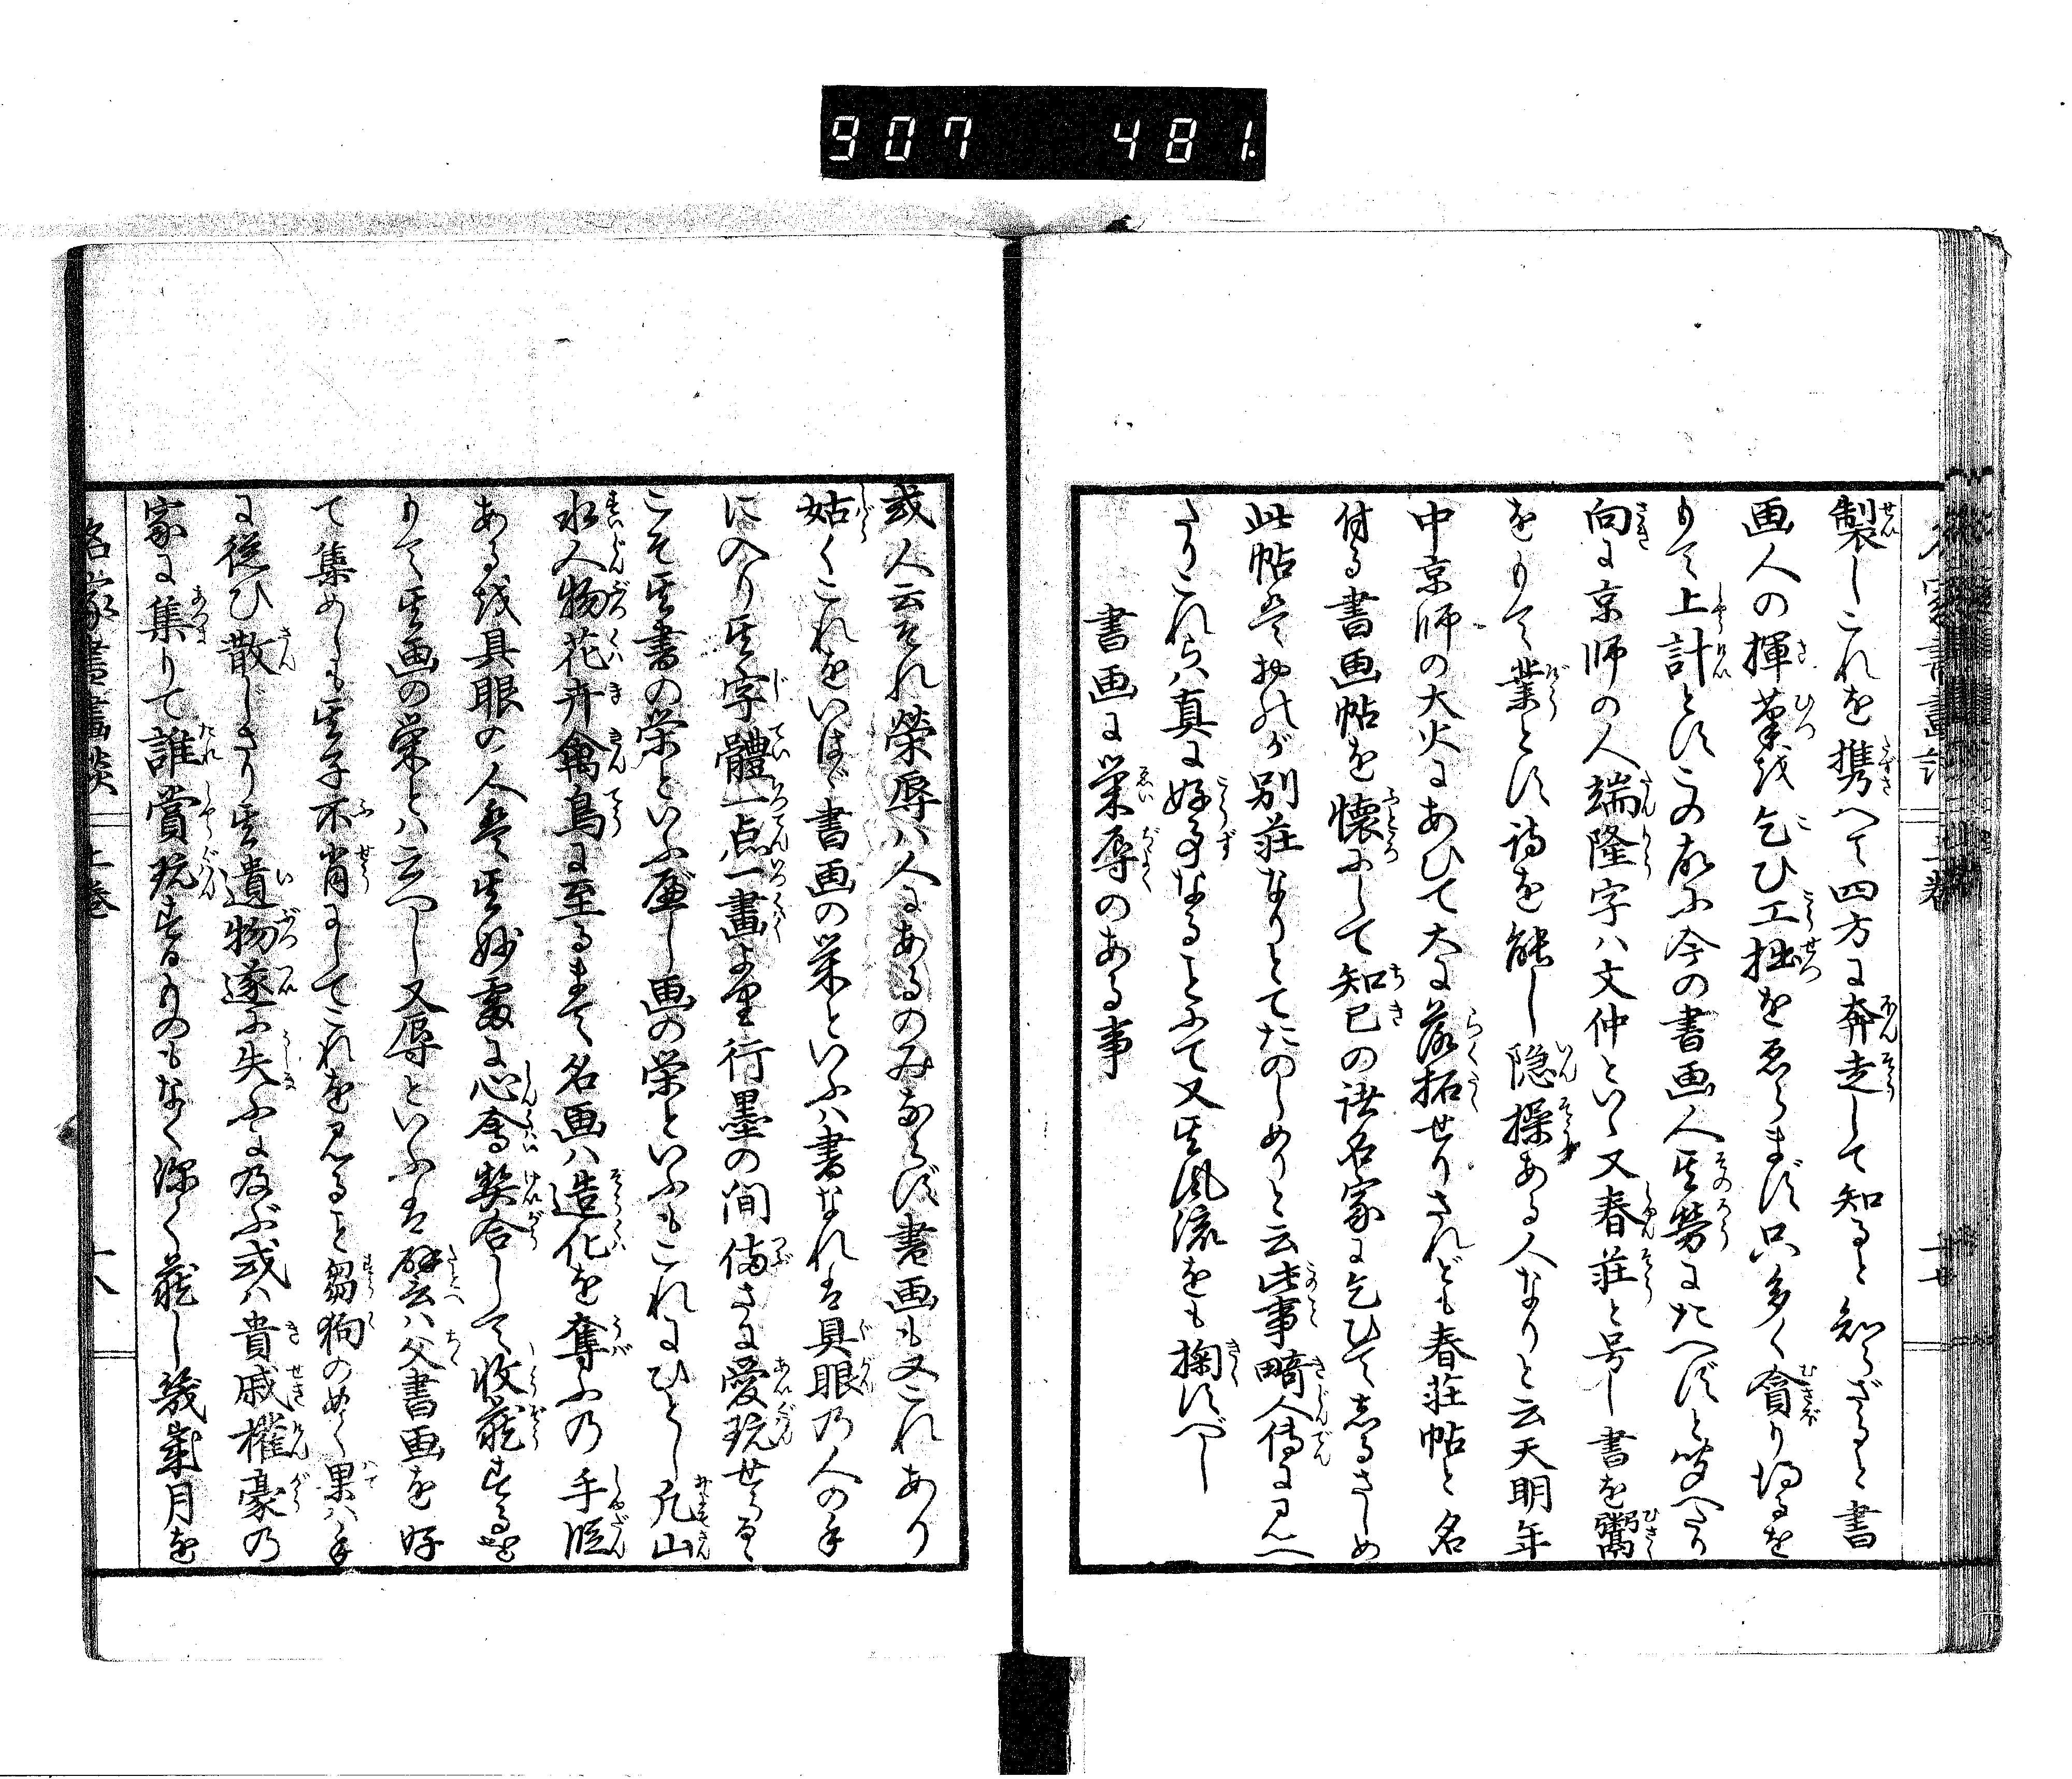 907 481
製しこれを携へて四方に奔走して知ると知らざると書
画人の揮筆を乞ひ工拙をゑらまず只多く貪り得るを
もて上計とすこの故に今の書画人其労にたへずと聞へたり
向に京師の人端隆字ハ文仲といゝ又春荘と号し書を鬻
をもて業とす詩を能し隠操ある人なりと云天明年
中京師の大火にあひて大に落拓せりされども春荘帖と名
付る書画帖を懐にして知己の諸名家に乞ひてしるさしめ
此帖是わが別荘なりとてたのしめりと云此事畸人伝に見へ
たりこれらハ真に好事なることにて又其風流をも掬すべし
書画に栄辱のある事
或人云それ榮辱ハ人にあるのみならず書画も又これあり
姑くこれをいはゞ書画の栄といふハ書なれば具眼乃人の手
に入り其字體一点一畫より行墨の間備さに愛玩せらるゝ
こそ其書の栄といふ應し画の栄といふもこれにひとし凡山
水人物花卉禽鳥に至るまで名画ハ造化を奪ふ乃手段
あるを具眼の人是其妙處に心會契合して收蔵するを
もて其画の栄とハ云べし又辱といふは譬へハ父書画を好
て集めしも其子不肖にしてこれを見ること芻狗のめく果ハ手
に従ひ散じさり其遺物遂に失ふに及ぶ或ハ貴戚權豪乃
家に集りて誰賞玩するものもなく深く蔵し幾歳月を
名家書畫談 上巻 十八